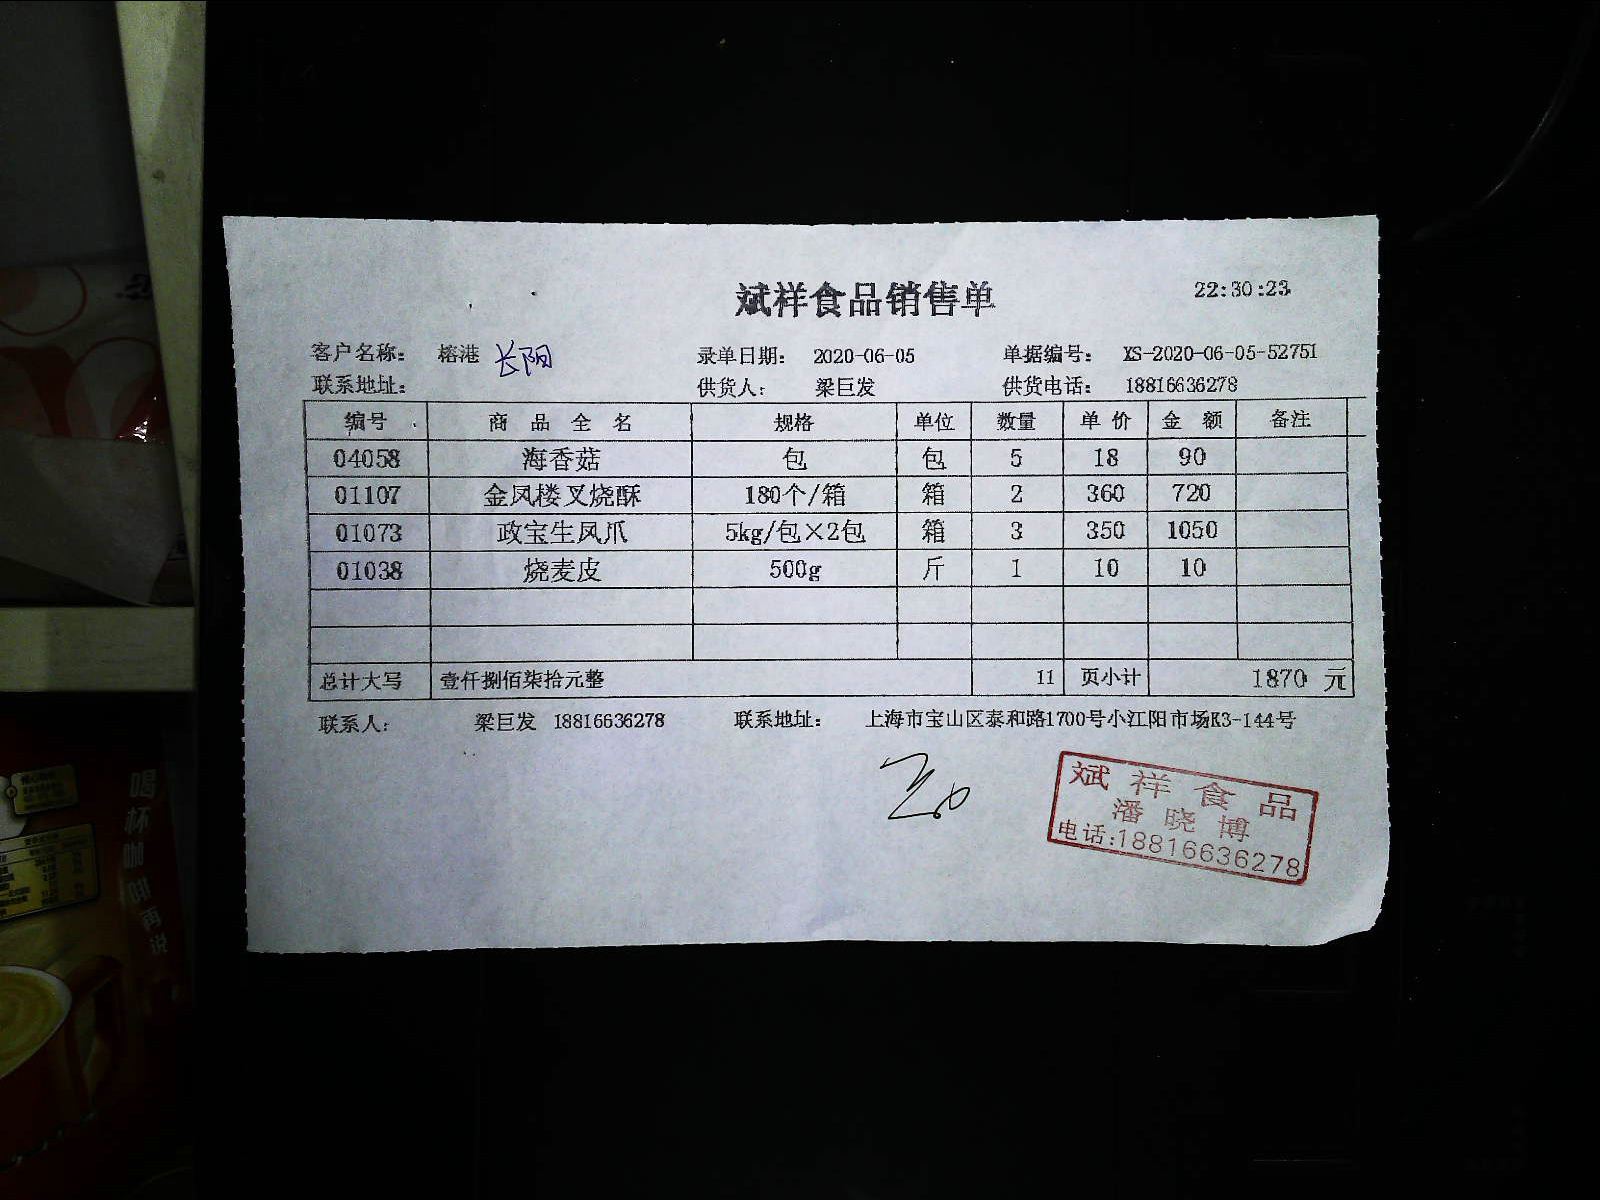 斌祥食品销售单 22:30:23
客户名称： 榕港 长阳 录单日期： 2020-06-05 单据编号： XS-2020-06-05-52751
联系地址： 供货人： 梁巨发 供货电话： 18816636278
编号 商 品 全 名 规格 单位 数量 单 价 金 额 备注
04058 海香菇 包 包 5 18 90
01107 金凤楼叉烧酥 180个/箱 箱 2 360 720
01073 政宝生凤爪 5kg/包×2包 箱 3 350 1050
01038 烧麦皮 500g 斤 1 10 10
总计大写 壹仟捌佰柒拾元整 11 页小计 1870 元
联系人： 梁巨发 18816636278 联系地址： 上海市宝山区泰和路1700号小江阳市场K3-144号
斌祥食品
潘晓博
电话:18816636278
喝杯咖啡再说